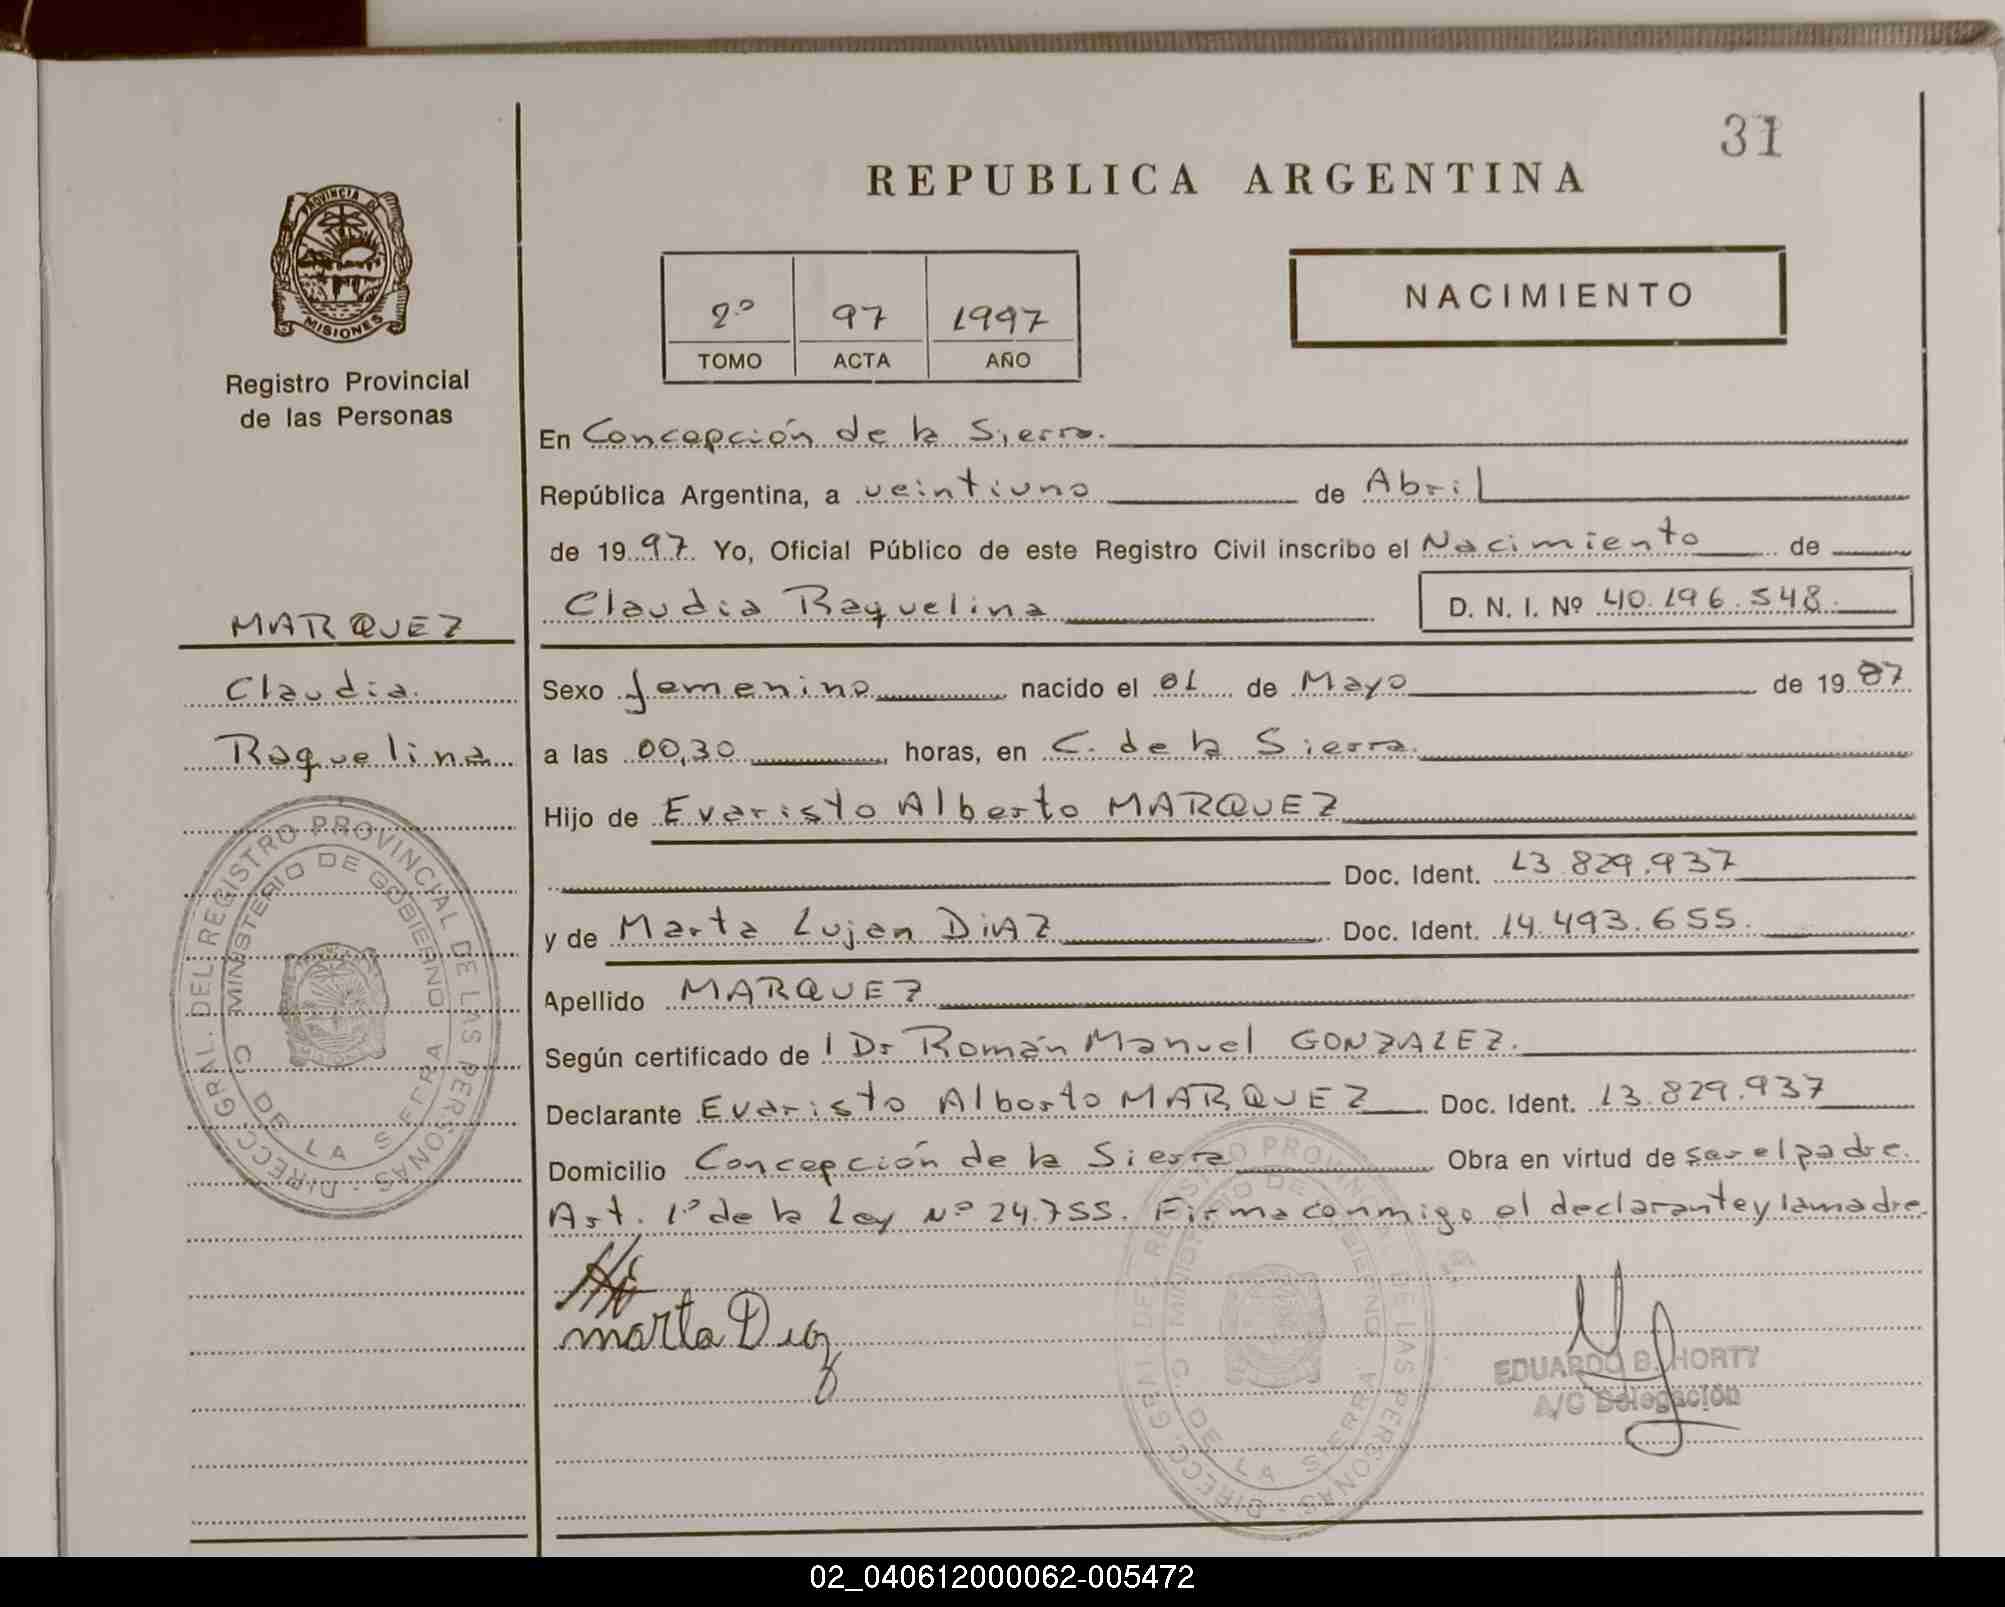 31
REPUBLICA ARGENTINA
PROVINCIA DE
MISIONES
Registro Provincial
de las Personas
2º 97 1997
TOMO ACTA AÑO
NACIMIENTO
En Concepción de la Sierra.
República Argentina, a veintiuno de Abril
de 1997. Yo, Oficial Público de este Registro Civil inscribo el Nacimiento de
Claudia Raquelina D. N. I. Nº 40.196.548.
MARQUEZ
Claudia
Raquelina
Sexo femenino nacido el 01 de Mayo de 1987
a las 00,30 horas, en C. de la Sierra.
Hijo de Evaristo Alberto MARQUEZ
Doc. Ident. 13.829.937
y de Marta Lujan DiAZ Doc. Ident. 14.493.655.
Apellido MARQUEZ
Según certificado de l Dr Román Manuel GONZALEZ.
Declarante Evaristo Alberto MARQUEZ Doc. Ident. 13.829.937
Domicilio Concepción de la Sierra Obra en virtud de ser el padre.
Art. 1º de la Ley Nº 24.755. Firma conmigo el declarante y la madre.
DIRECC. GRAL. DEL REGISTRO PROVINCIAL DE LAS PERSONAS
MINISTERIO DE GOBIERNO
C DE LA SIERRA
marta Diaz
DIRECC. GRAL. DEL REGISTRO PROVINCIAL DE LAS PERSONAS
MINISTERIO DE GOBIERNO
C DE LA SIERRA
EDUARDO B. HORTY
A/C Delegación
02_040612000062-005472